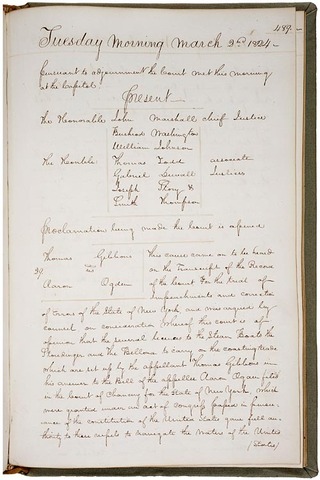 489.
Tuesday Morning March 2d 1824
Pursuant to adjournment the Court met this morning
at the Capitol.
Present
The Honorable John Marshall Chief Justice
Bushrod Washington
William Johnson
The Honble Thomas Todd associate
Gabriel Duvall Justices
Joseph Story &
Smith Thompson
Proclamation being made the Court is opened
Thomas Gibbons This cause came on to be heard
on the Transcript of the Record
Aaron Ogden of the Court for the trial of
Impeachments and correction
of errors of the State of New York and was argued by
counsel on consideration whereof this court is of
opinion that the several licenses to the Steam Boats the
Stoudinger and the Bellona to carry on the coasting trade
which are set up by the appellant Thomas Gibbons in
his answer to the Bill of the appellee Aaron Ogden filed
in the Court of Chancery for the State of New York, which
were granted under an act of Congress passed in pursu-
ance of the constitution of the United States gave full au-
thority to those vessels to navigate the waters of the United
(States)